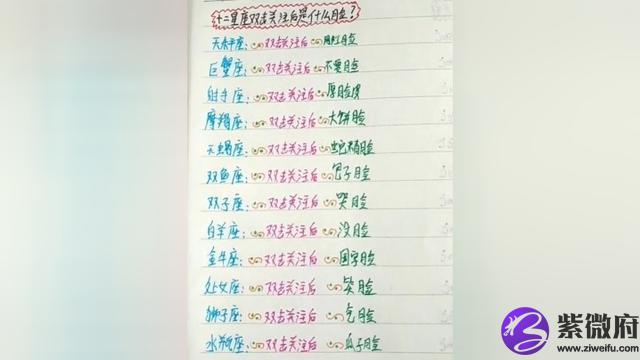 十二星座双击关注后是什么脸？
天秤座：双击关注后 网红脸
巨蟹座：双击关注后 不要脸
射手座：双击关注后 厚脸皮
摩羯座：双击关注后 大饼脸
天蝎座：双击关注后 蛇精脸
双鱼座：双击关注后 包子脸
双子座：双击关注后 哭脸
白羊座：双击关注后 没脸
金牛座：双击关注后 国字脸
处女座：双击关注后 笑脸
狮子座：双击关注后 气脸
水瓶座：双击关注后 瓜子脸
紫微府
www.ziweifu.com